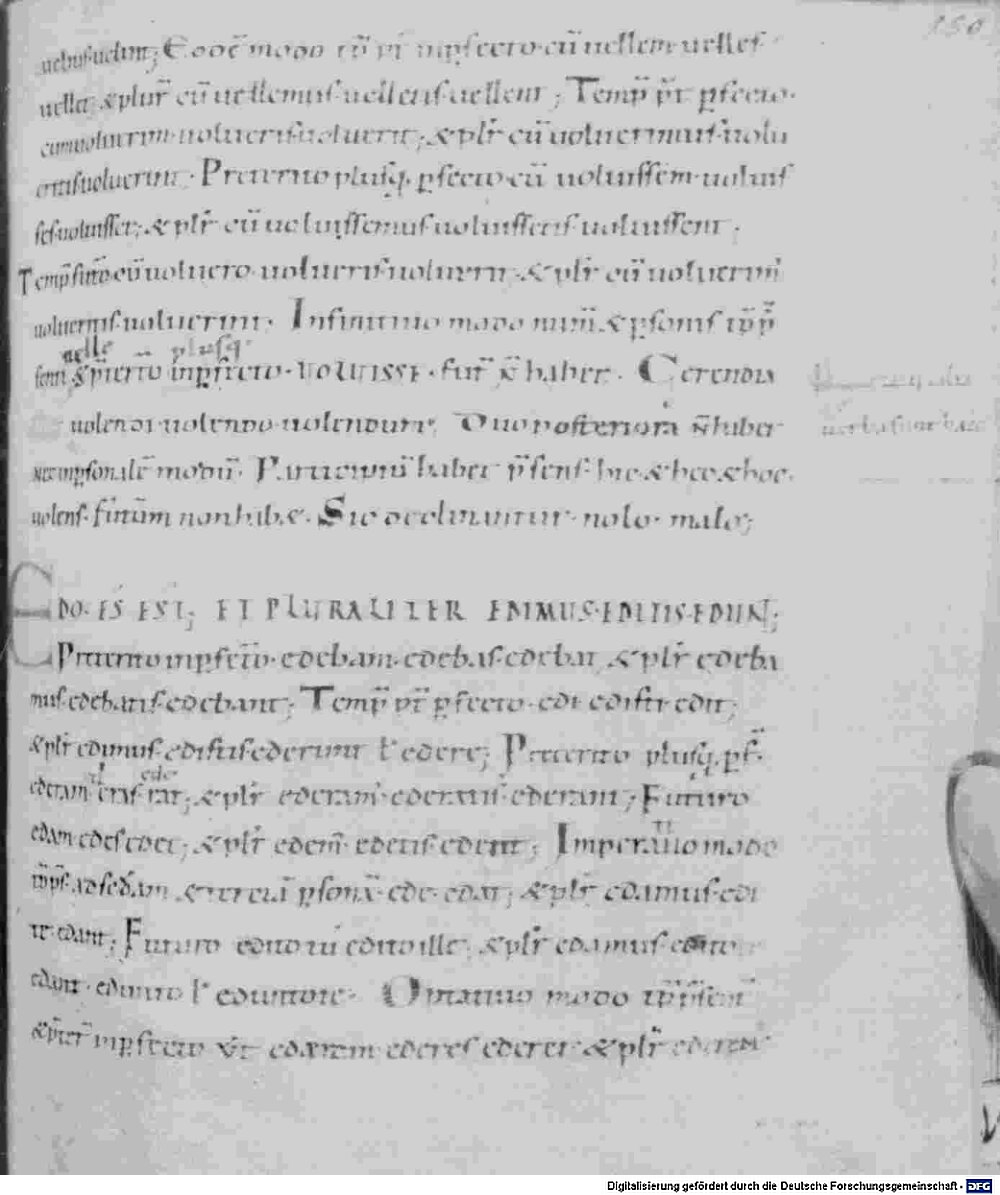 150
uelitis uelint; Eodē modo tēp̄ p̄t inp̄fecto cū uellem uelles
uellet &plur̄ cū uellemus uelletis uellent; Temp̄ p̄t p̄fecto
cum uoluerim uolueris uoluerit; &plr̄ cū uoluerimus uolu
eritis uoluerint. Preterito plusq. p̄fecto cū uoluissem uoluis
ses uoluisset; &plr̄ cū uoluissemus uoluissetis uoluissent.
Temp̄ futr̄o cū uoluero uolueris uoluerit &plr̄ cū uoluerim̄
uolueritis uoluerint. Infinitiuo modo num̄ &p̄sonis tp̄r̄
uelle plusq
senti &p̄terr̄to inp̄fecto. UOLUISSE. fut̄ n̄ habet. Gerendia
uolendi uolendo uolendum; Duo posteriora n̄ habet
nec inp̄sonalē modū. Participiū habet p̄sens hic &hec &hoc.
uolens. futurum non habet. Sic declinantur nolo. malo;
EDO. ES EST; ET PLURALITER EDIMUS. EDITIS. EDUNT;
Preterito inp̄fecto. edebam. edebas. edebat &plr̄ edeba
mus. edebatis. edebant; Temp̄ p̄t p̄fecto. edi edisti edit;
&plr̄ edimus. edistis. ederunt l' edere; Preterito plusq. p̄f.
ederam eras rat; &plr̄ ederam̄. ederatis. ederant; Futuro
edam edes edet; &plr̄ edem̄. edetis. edent; Imperatiuo modo
&tertiā p̄sonā. ede. edat; &plr̄ edamus. edi
te. edant; Futuro edito tu edito ille &plr̄ edamus. edito
edant. edunto l' eduntote. Optatiuo modo
&p̄terr̄ inp̄fecto ut ederem ederes ederet &plr̄ ederem̄
Digitalisierung gefördert durch die Deutsche Forschungsgemeinschaft - DFG